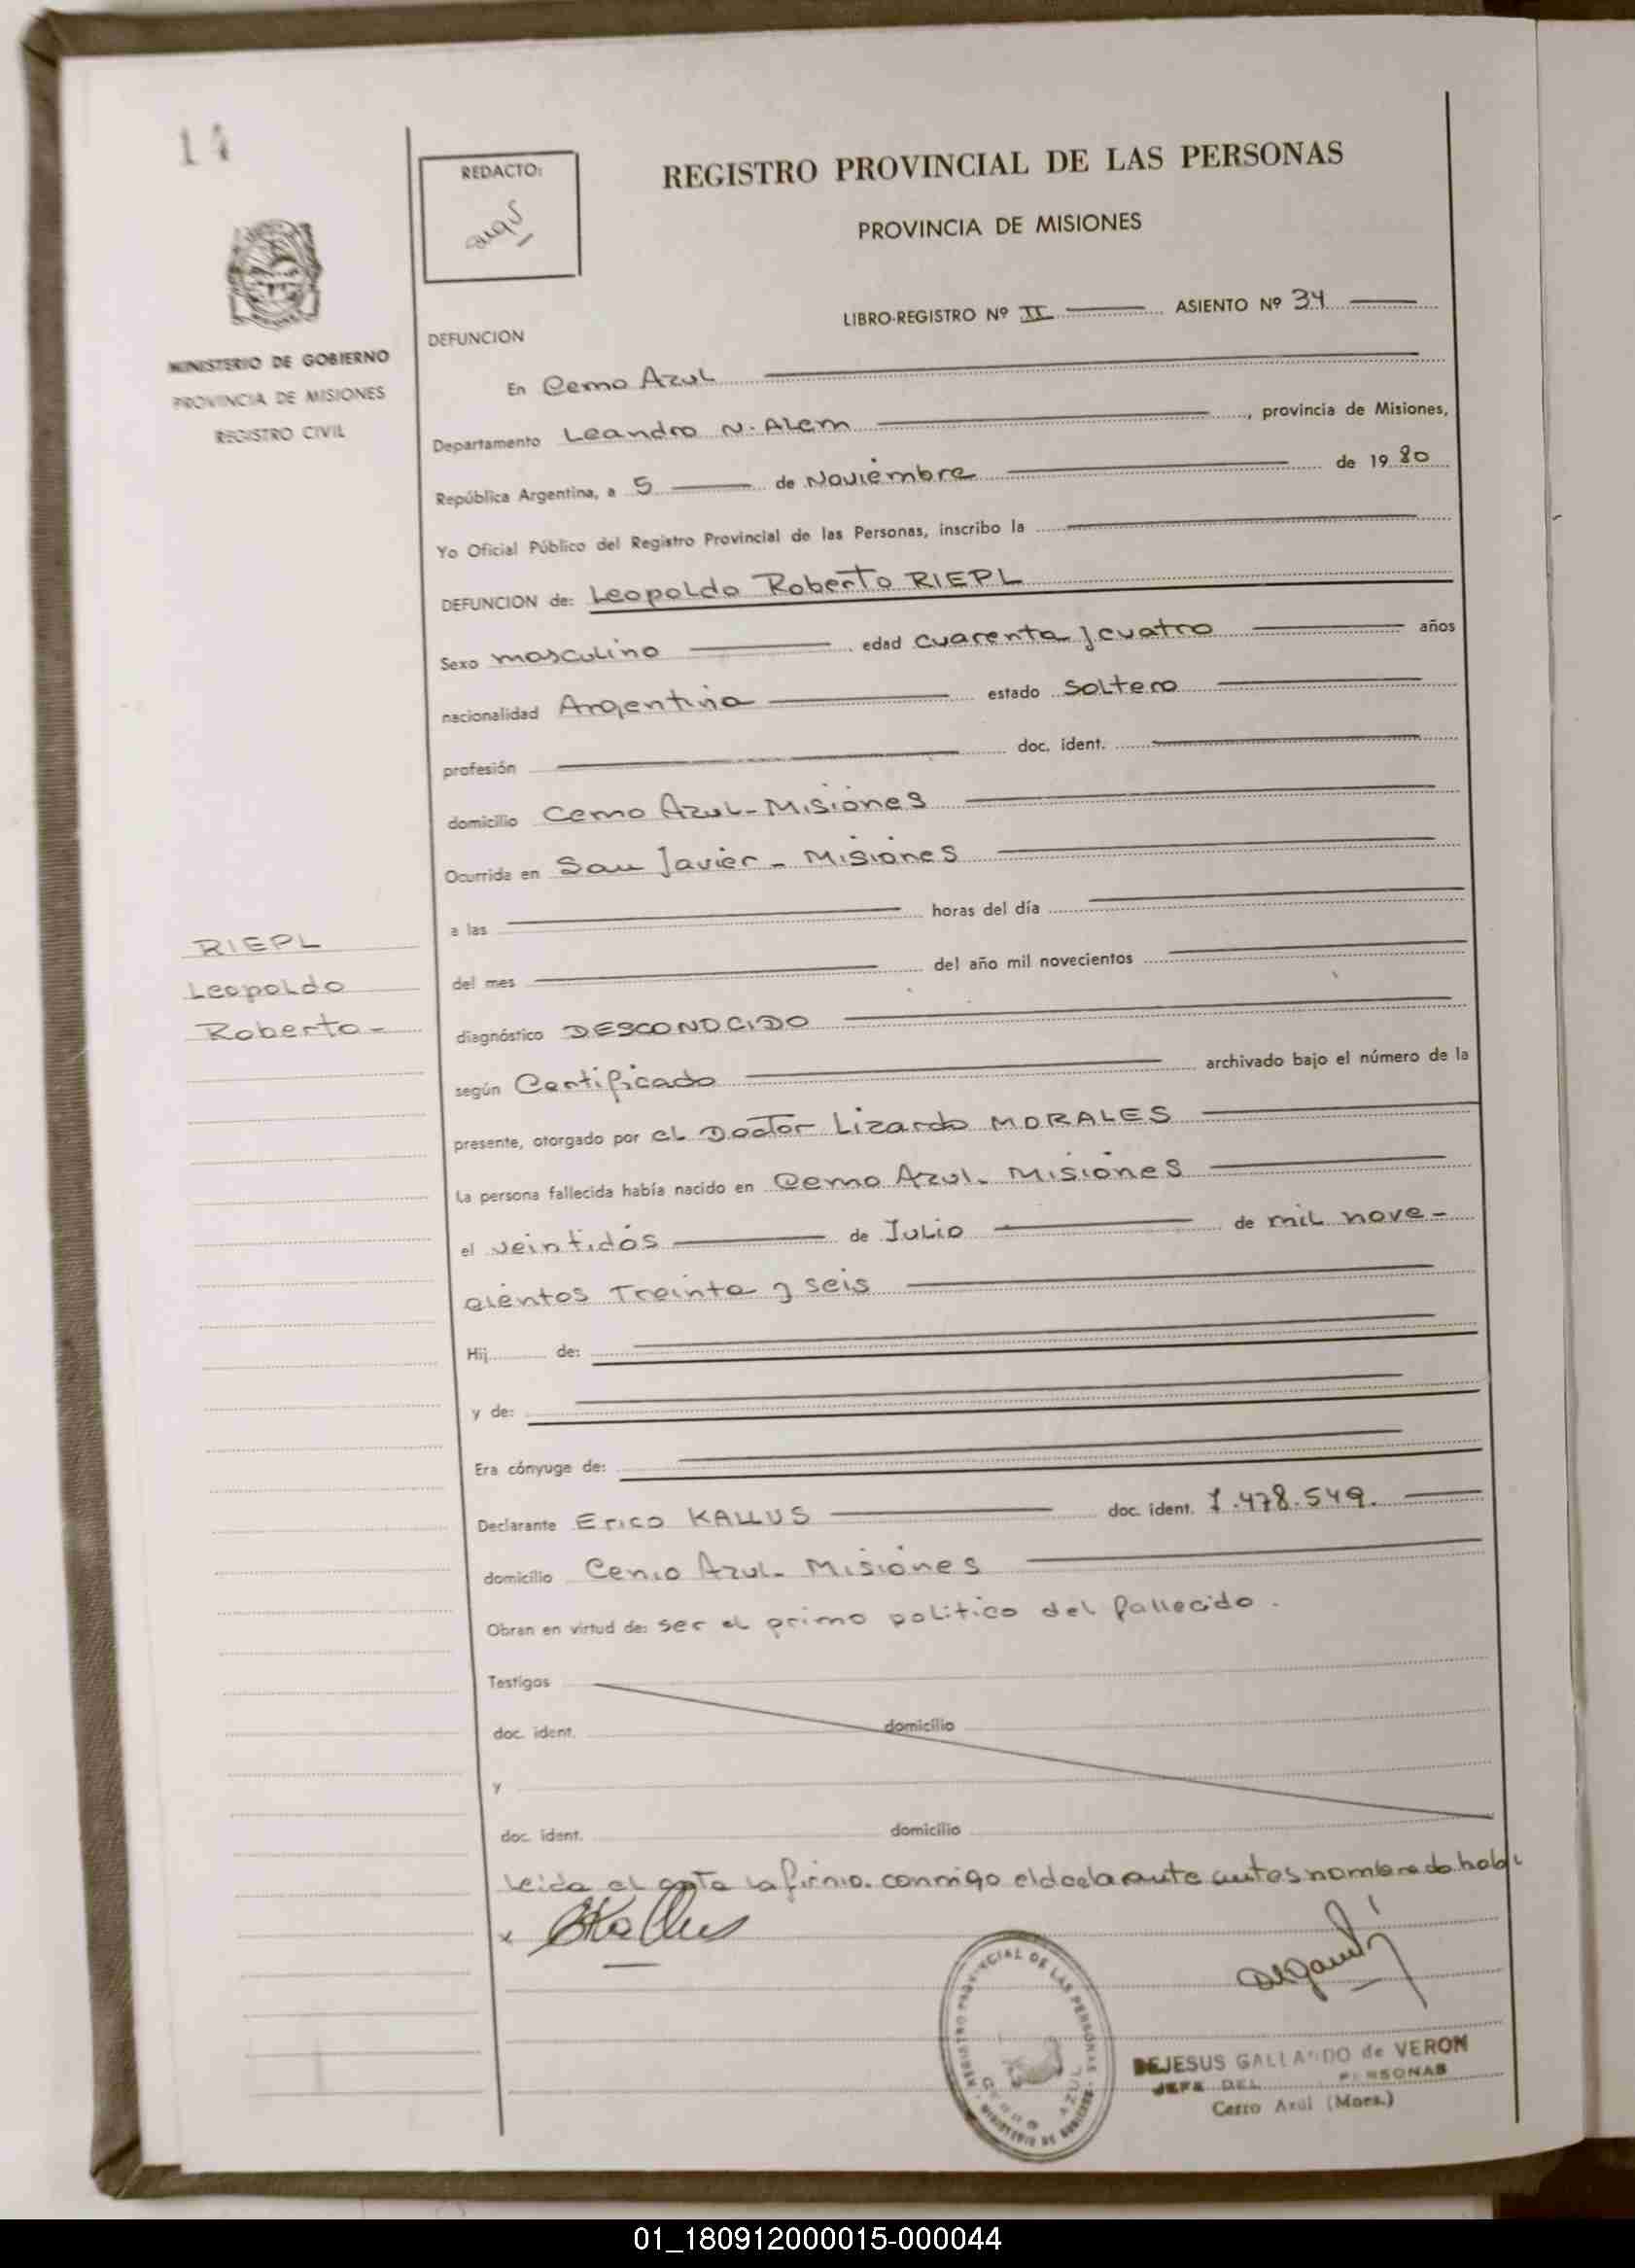 REDACTO:
REGISTRO PROVINCIAL DE LAS PERSONAS
PROVINCIA DE MISIONES
LIBRO-REGISTRO Nº II ASIENTO Nº 34
DEFUNCION
MINISTERIO DE GOBIERNO
PROVINCIA DE MISIONES
REGISTRO CIVIL
En Cerro Azul
Departamento Leandro N. Alem, provincia de Misiones,
República Argentina, a 5 de Noviembre de 1980
Yo Oficial Público del Registro Provincial de las Personas, inscribo la
DEFUNCION de: Leopoldo Roberto RIEPL
Sexo masculino edad cuarenta y cuatro años
nacionalidad Argentina estado soltero
profesión doc. ident.
domicilio Cerro Azul - Misiones
Ocurrida en San Javier - Misiones
a las horas del día
del mes del año mil novecientos
RIEPL
Leopoldo
Roberto -
diagnóstico DESCONOCIDO
según Certificado archivado bajo el número de la
presente, otorgado por el Doctor Lizardo MORALES
La persona fallecida había nacido en Cerro Azul - Misiones
el veintidós de Julio de mil nove-
cientos Treinta y seis
Hij de:
y de:
Era cónyuge de:
Declarante Erico KALLUS doc. ident. 7.478.549.
domicilio Cerro Azul - Misiones
Obran en virtud de: ser el primo político del fallecido.
Testigos
doc. ident. domicilio
y
doc. ident. domicilio
Leida el acta la firma conmigo el declarante antes nombrado
x EKallus
REGISTRO PROVINCIAL DE LAS PERSONAS
CERRO AZUL
MINISTERIO DE GOBIERNO
DEJESUS GALLARDO de VERON
JEFE DEL PERSONAS
Cerro Azul (Mnes.)
01_180912000015-000044